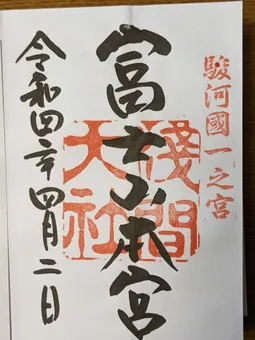 駿河國一之宮
富士山本宮
淺間大社
令和四年四月二日